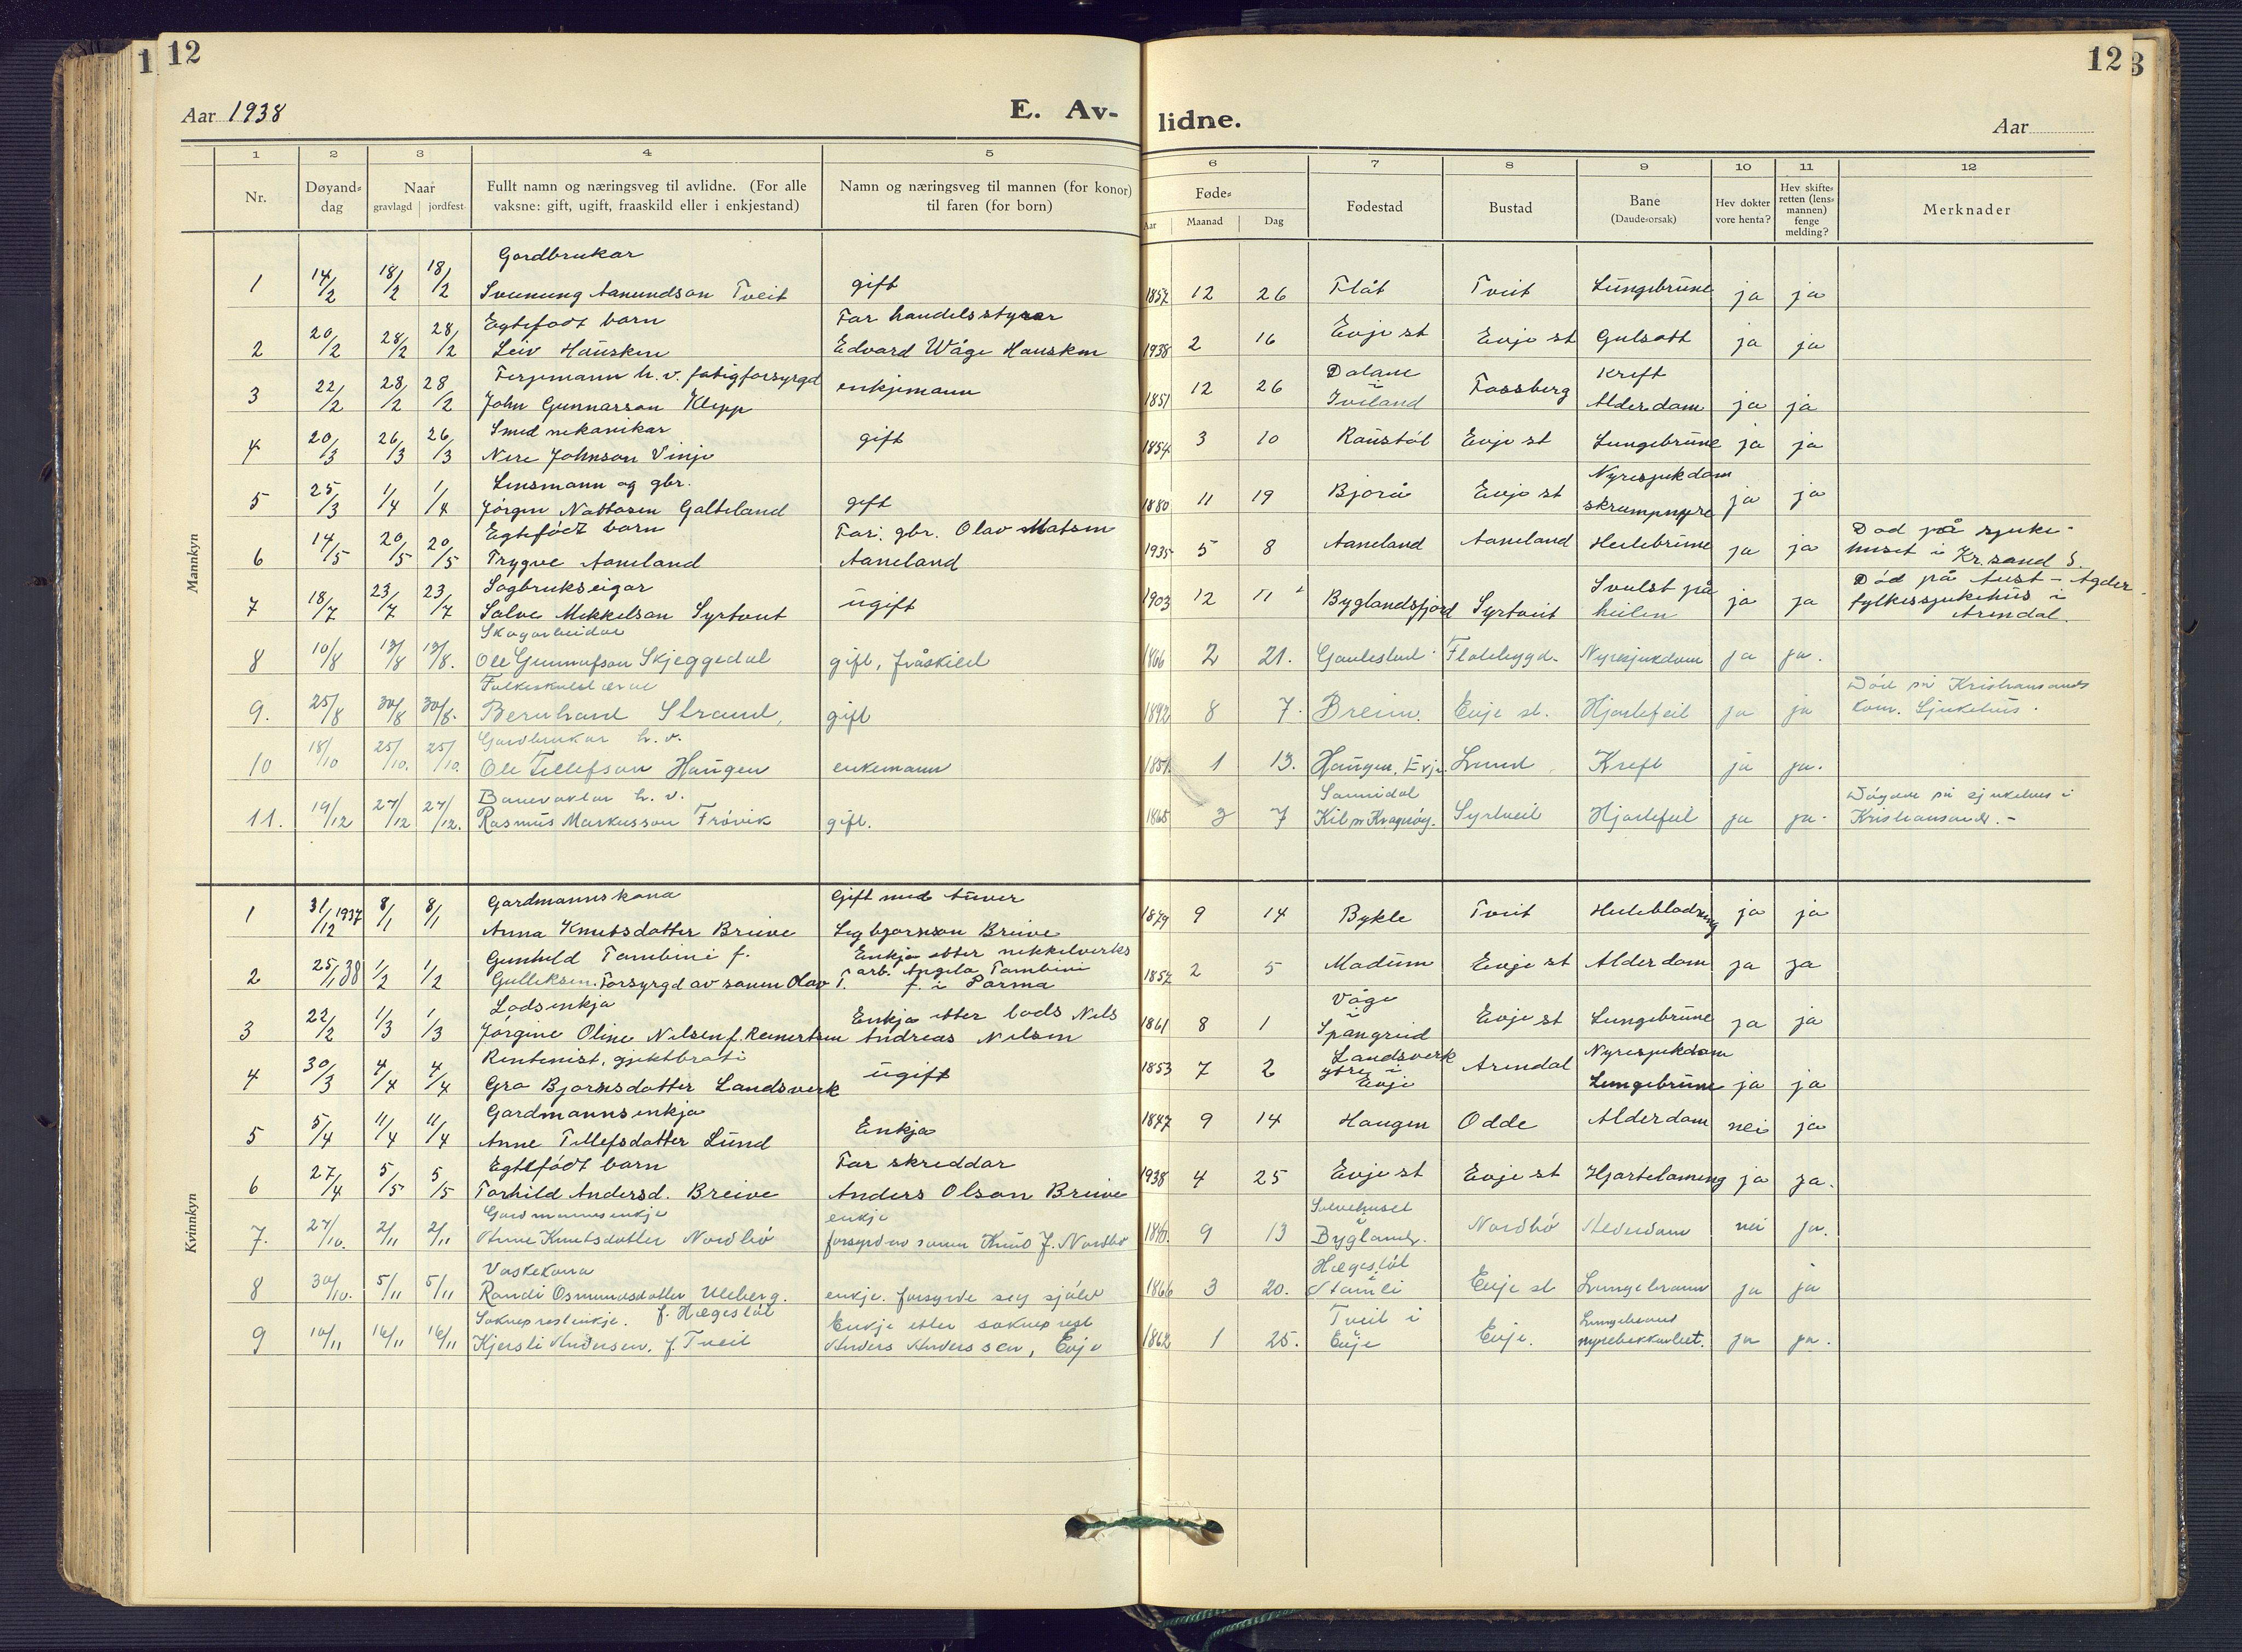 1 12
12 3
Aar 1938
E. Av-
lidne.
Aar
1 2 3 4 5
6 7 8 9 10 11 12
Nr. Døyand-dag Naar gravlagd jordfest. Fullt namn og næringsveg til avlidne. (For alle vaksne: gift, ugift, fraaskild eller i enkjestand) Namn og næringsveg til mannen (for konor) til faren (for born)
Føde- Aar Maanad Dag Fødestad Bustad Bane (Daude-orsak) Hev dokter vore henta? Hev skifte-retten (lens-mannen) fenge melding? Merknader
Mannkyn
Gardbrukar
1 14/2 18/2 18/2 Svenung Aanundson Tveit gift 1857 12 26 Flåt Tveit Lungebrune ja ja
Egtefødt barn Far handelsstyrer
2 20/2 28/2 28/2 Leiv Hausken Edvard Wåge Hausken 1938 2 16 Evje st Evje st Gulsott ja ja
Ferjemann h. v. fatigforsyrgd Dalane i Kreft
3 22/2 28/2 28/2 John Gunnarson Klepp enkjemann 1851 12 26 Iveland Fossberg Alderdom ja ja
Smed mekanikar
4 20/3 26/3 26/3 Nere Johnson Vinje gift 1854 3 10 Raustøl Evje st Lungebrune ja ja
Lensmann og gbr. Nyresjukdom
5 25/3 1/4 1/4 Jørgen Nottosen Galteland gift 1880 11 19 Bjorå Evje st skrumpnyre ja ja
Egtefødt barn Far: gbr. Olav Matsen Død på sjuke-
6 14/5 20/5 20/5 Trygve Aaneland Aaneland 1935 5 8 Aaneland Aaneland Heilebrune ja ja huset i Kr.sand S.
Sagbrukseigar Svulst på Død på Aust-Agder
7 18/7 23/7 23/7 Salve Mikkelson Syrtveit ugift 1903 12 11 Byglandsfjord Syrtveit heilen ja ja fylkessjukehus i Arendal.
Skogarbeidar
8 10/8 13/8 13/8. Ole Gunnufson Skjeggedal gift, fråskild 1866 2 21. Gautestad Flatebygd. Nyresjukdom ja ja.
Folkeskulelærar Død på Kristiansands
9. 25/8 30/8 30/8. Bernhard Strand, gift 1892 8 7. Breim. Evje st. Hjartefeil ja ja kom. Sjukehus.
Gardbrukar h. v.
10 18/10 25/10. 25/10. Ole Tellefson Haugen enkemann 1851. 1 13. Haugen, Evje. Lund Kreft ja ja.
Banevaktar h. v. Sannidal Døydde på sjukehus i
11. 19/12 27/12 27/12. Rasmus Markusson Frøvik gift. 1865 3 7 Kil pr Kragerøy. Syrtveit Hjartefeil ja ja. Kristiansand. -
Kvinnkyn
Gardmannskona Gift med Auver
1 31/12 1937 8/1 8/1 Anna Knutsdotter Breive Sigbjørnson Breive 1879 9 14 Bykle Tveit Heileblodning ja ja
Gunhild Tambini f. Enkje etter nikkelverks
2 25/1 38 1/2 1/2 Gulleksen. Forsyrgd av sonen Olav T. arb. Angelo Tambini f. i Parma 1857 2 5 Modum Evje st Alderdom ja ja
Lodsenkja Enkje etter lods Nils Våge i
3 22/2 1/3 1/3 Jørgine Oline Nilsen f. Reinertsen Andreas Nilsen 1861 8 1 Spangreid Evje st Lungebrune ja ja
Rentenist, gjektbrøti Landsverk Nyresjukdom
4 30/3 4/4 4/4 Gro Bjørnsdotter Landsverk ugift 1853 7 2 ytre i Evje Arendal Lungebrune ja ja
Gardmannsenkja
5 5/4 11/4 11/4 Anne Tellefsdotter Lund Enkja 1847 9 14 Haugen Odde Alderdom nei ja
Egtefødt barn Far skreddar
6 27/4 5/5 5/5 Torhild Andersd. Breive Anders Olson Breive 1938 4 25 Evje st Evje st Hjartelaming ja ja.
Gardmannsenkje enkje i
7. 27/10. 2/11 2/11 Anne Knutsdotter Nordbø forsyrd av sonen Knut J. Nordbø 9 13 Bygland. Nordbø Alderdom nei ja.
Vaskekona Hægestøl i
8 30/10. 5/11 5/11 Randi Osmundsdotter Uleberg. f. Hægestøl enkje. forsyrde seg sjølv 1866 3 20. Åmli Evje st Lungebrann ja ja
Sokneprestenkje. Enkje etter sokneprest Tveit i Lungebrand
9 10/11 16/11 16/11 Kjersti Andersen, f. Tveit Anders Anderssen, Evje 1862 1 25. Evje Evje. nyrebekkenbet. ja ja.